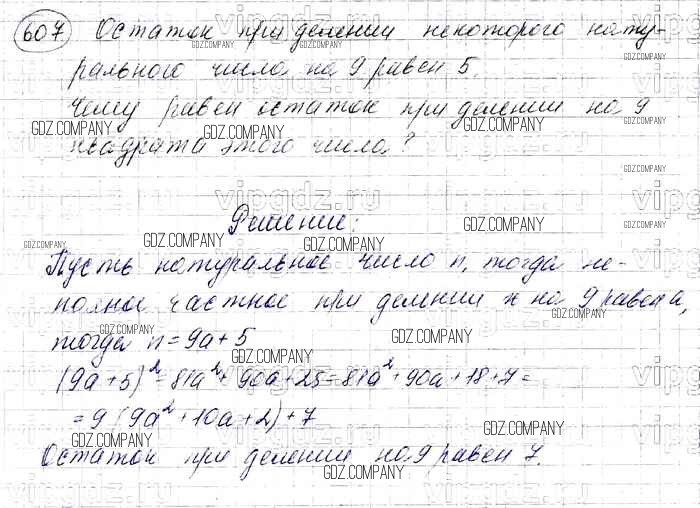 607 Остаток при делении некоторого нату-
рального числа на 9 равен 5.
Чему равен остаток при делении на 9
квадрата этого числа?
Решение:
Пусть натуральное число n, тогда не-
полное частное при делении n на 9 равен a,
тогда n = 9a + 5
(9a + 5)² = 81a² + 90a + 25 = 81a² + 90a + 18 + 7 =
= 9 (9a² + 10a + 2) + 7
Остаток при делении на 9 равен 7.
GDZ.COMPANY
vipgdz.ru